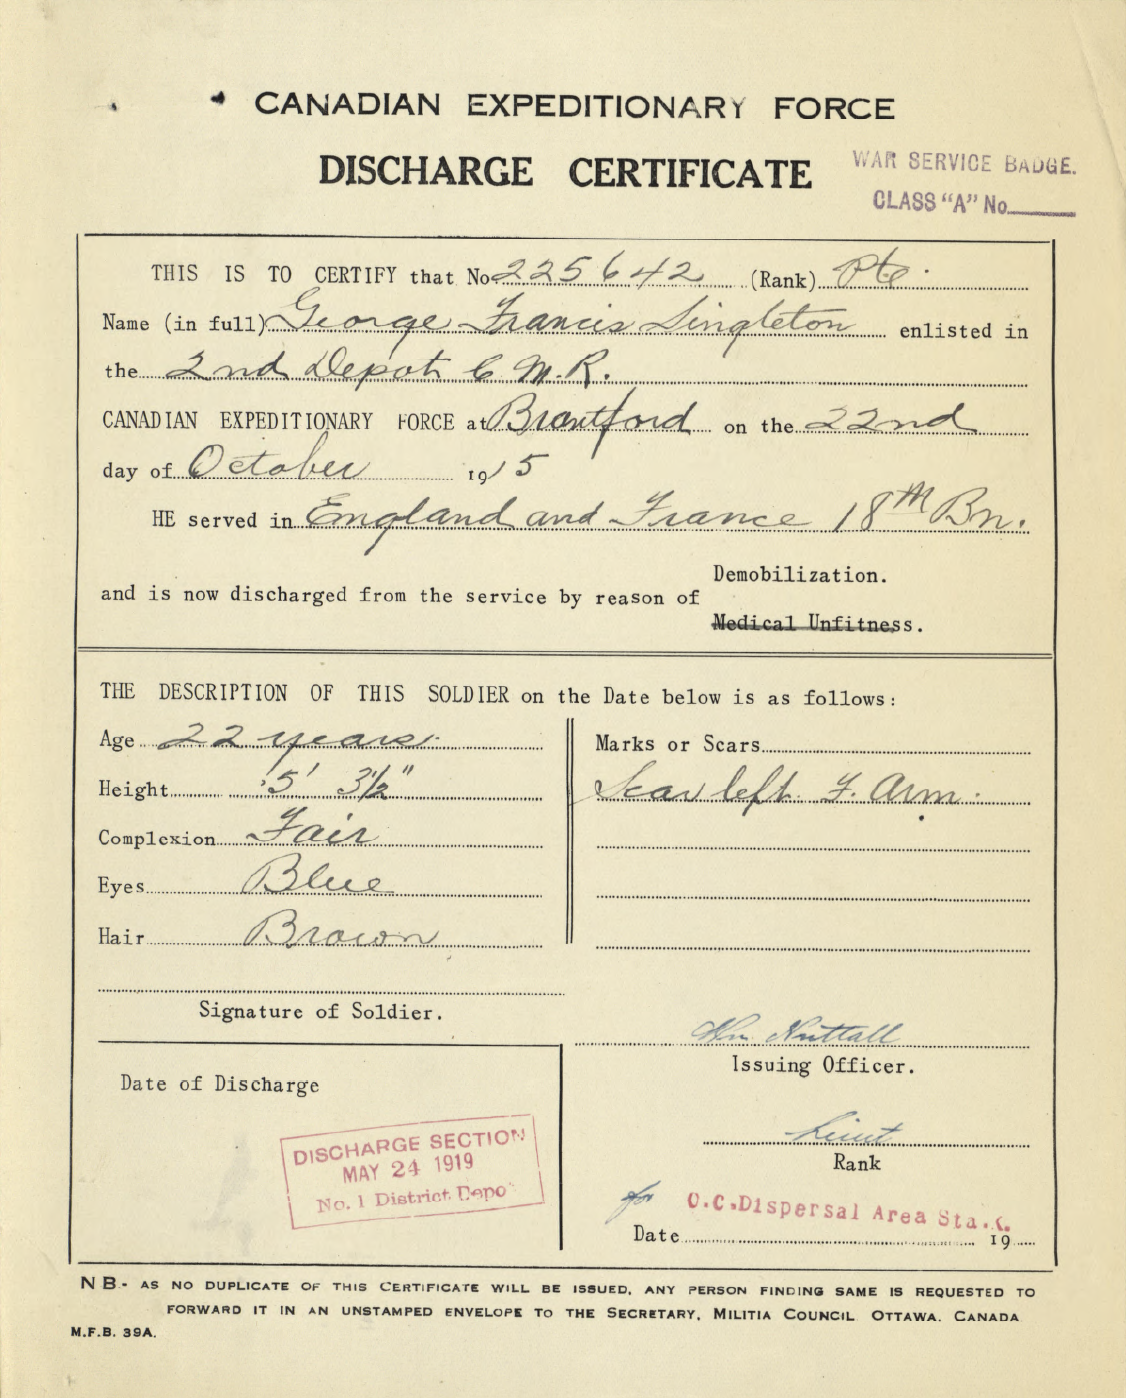 CANADIAN EXPEDITIONARY FORCE
DISCHARGE CERTIFICATE
WAR SERVICE BADGE.
CLASS "A" No
THIS IS TO CERTIFY that No 225642 (Rank) Pte.
Name (in full) George Francis Singleton enlisted in
the 2nd Depot C. M. R.
CANADIAN EXPEDITIONARY FORCE at Brantford on the 22nd
day of October 1915
HE served in England and France 18th Bn.
Demobilization.
and is now discharged from the service by reason of
Medical Unfitness.
THE DESCRIPTION OF THIS SOLDIER on the Date below is as follows:
Age 22 years.
Height 5' 3½"
Complexion Fair
Eyes Blue
Hair Brown
Marks or Scars
Scar left F. Arm.
Signature of Soldier.
Wm Nuttall
Issuing Officer.
Lieut
Rank
for O.C. Dispersal Area Sta. K.
Date 19
Date of Discharge
DISCHARGE SECTION
MAY 24 1919
No. 1 District Depo
NB- AS NO DUPLICATE OF THIS CERTIFICATE WILL BE ISSUED, ANY PERSON FINDING SAME IS REQUESTED TO
FORWARD IT IN AN UNSTAMPED ENVELOPE TO THE SECRETARY, MILITIA COUNCIL OTTAWA. CANADA
M.F.B. 39A.